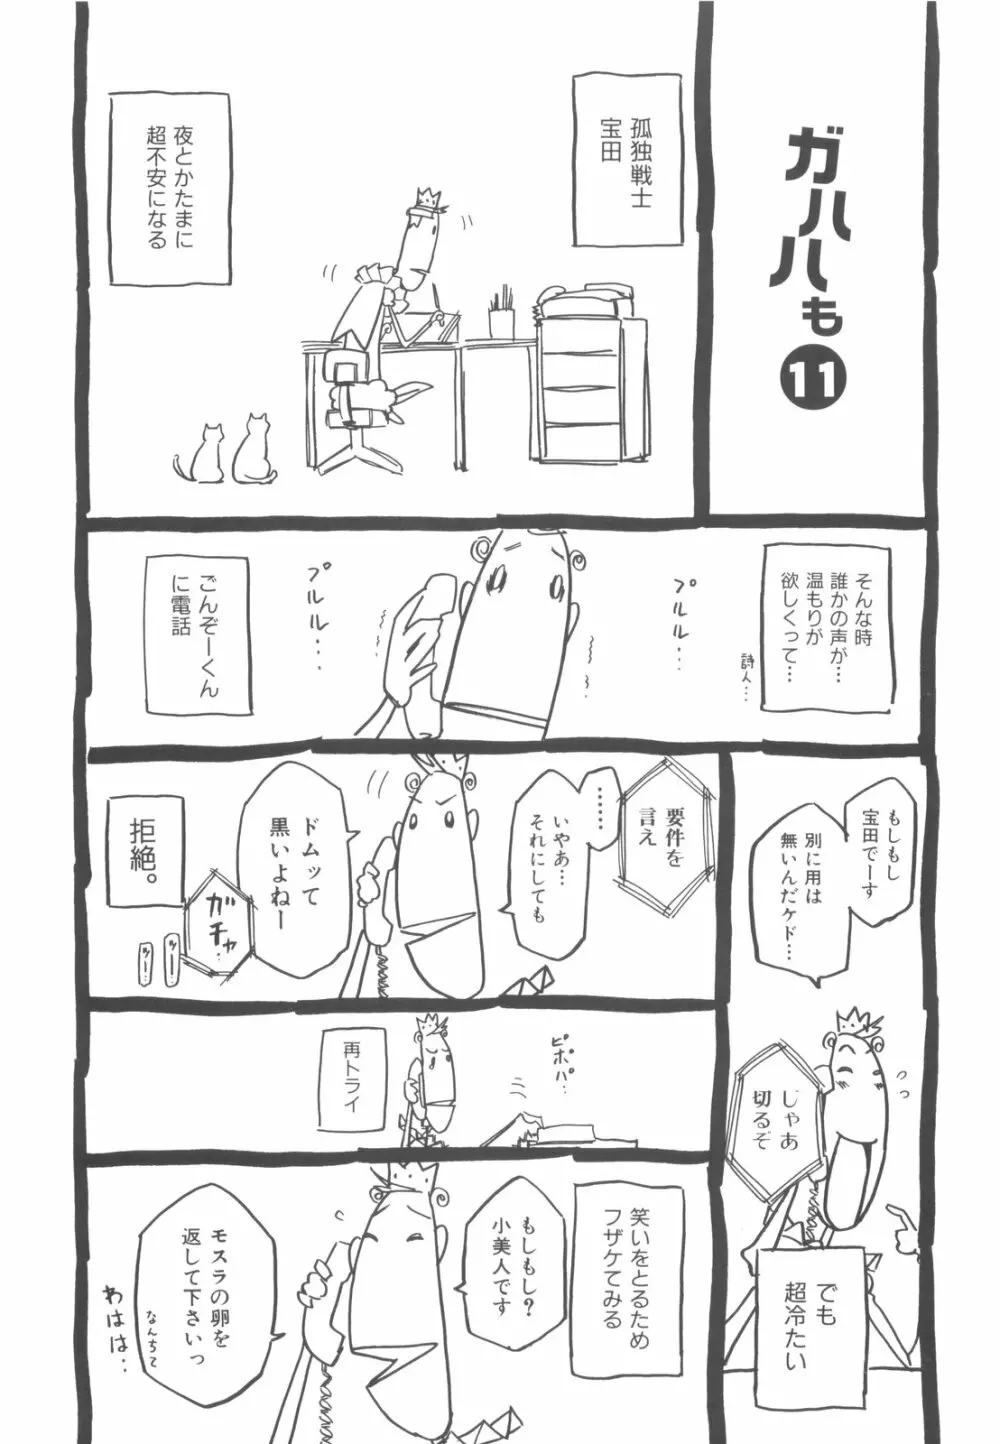 ガハハも
11
孤独戦士
宝田
夜とかたまに
超不安になる
そんな時
誰かの声が…
温もりが
欲しくって…
詩人…
プルルル…
プルルル…
ごんぞーくん
に電話
もしもし
宝田でーす
別に用は
無いんだケド…
じゃあ
切るぞ
でも
超冷たい
要件を
言え
……
いやあ…
それにしても
ドムッて
黒いよねー
ガチャ
ツー…
ツー…
拒絶。
ピポパ…
再トライ
笑いをとるため
フザケてみる
もしもし?
小美人です
モスラの卵を
返して下さいっ
なんちて
わはは…